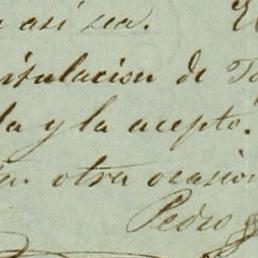 así sea. El
itulacion de
da y la aceptó.
otra ocasion
Pedro